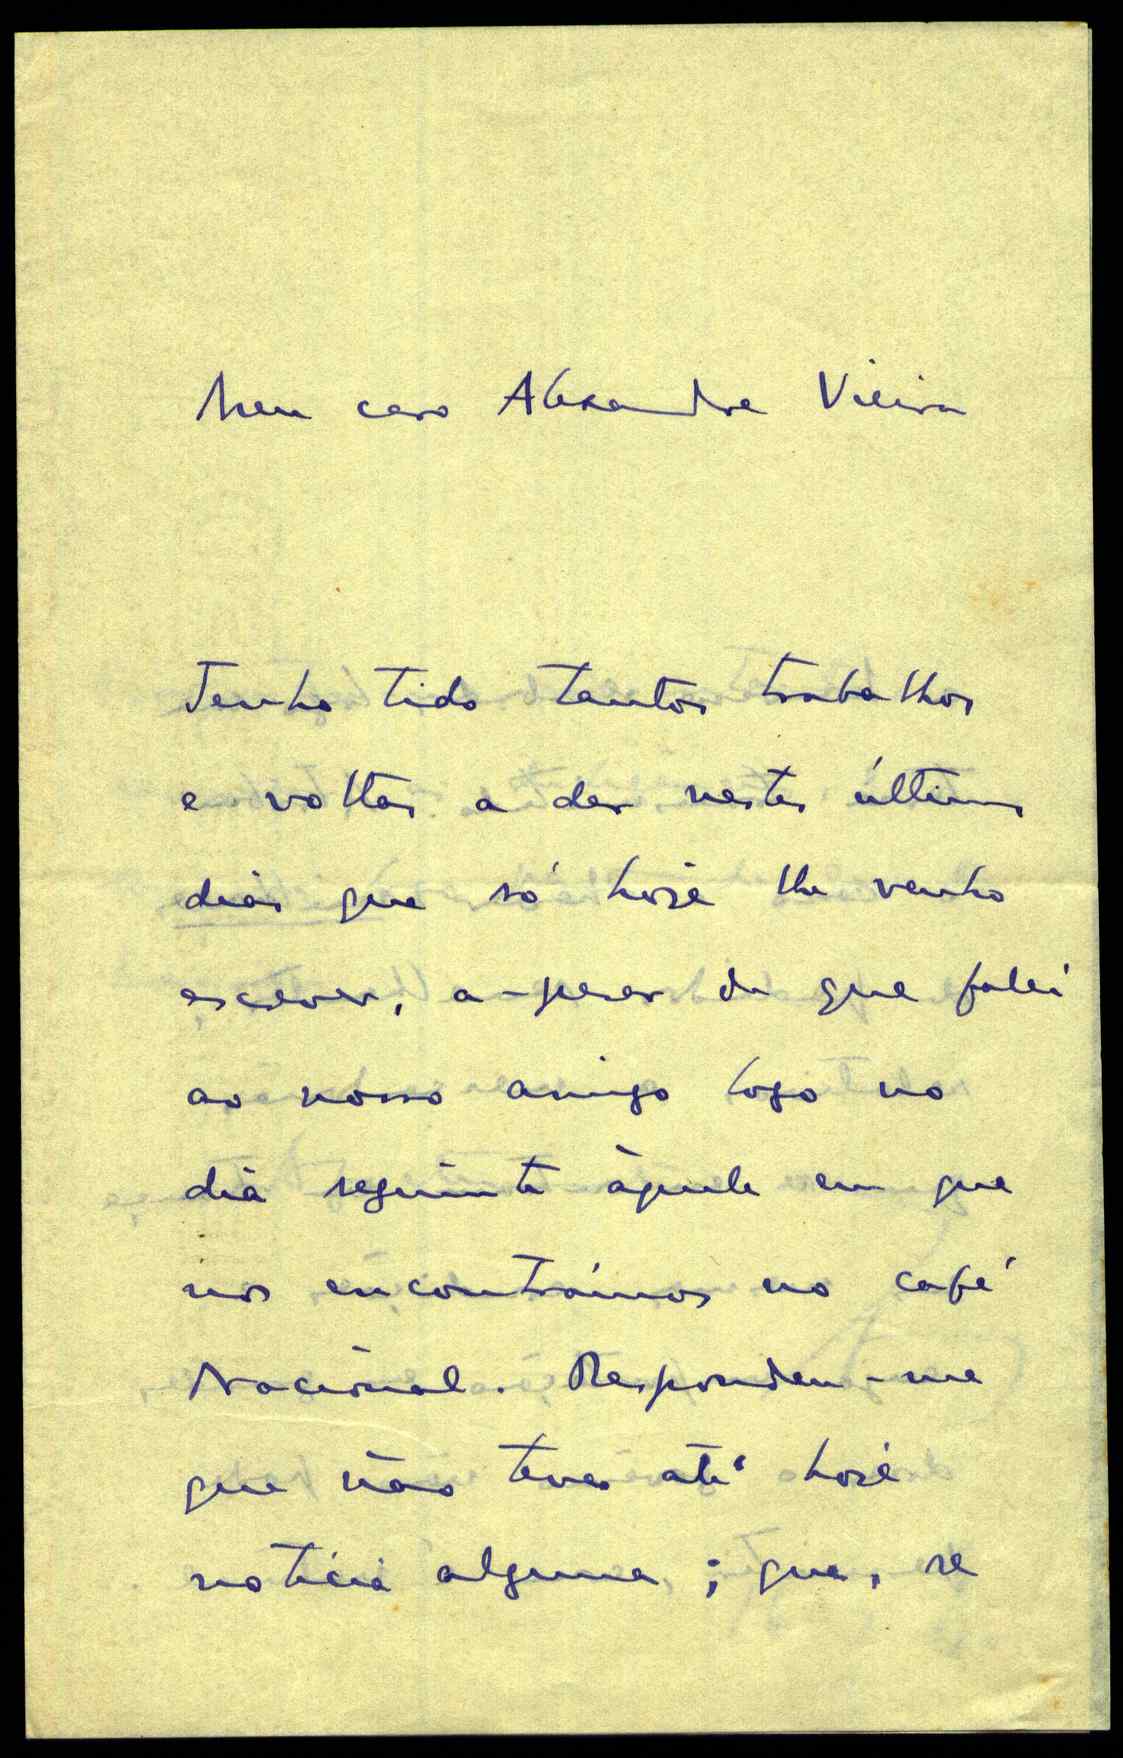 Meu caro Alexandre Vieira
Tenho tido tantos trabalhos
e voltas a dar nestes últimos
dias que só hoje lhe venho
escrever, a-pesar de que falei
ao nosso amigo logo no
dia seguinte àquele em que
nos encontrámos no café
Nacional. Respondeu-me
que não teve até hoje
notícia alguma; que, se